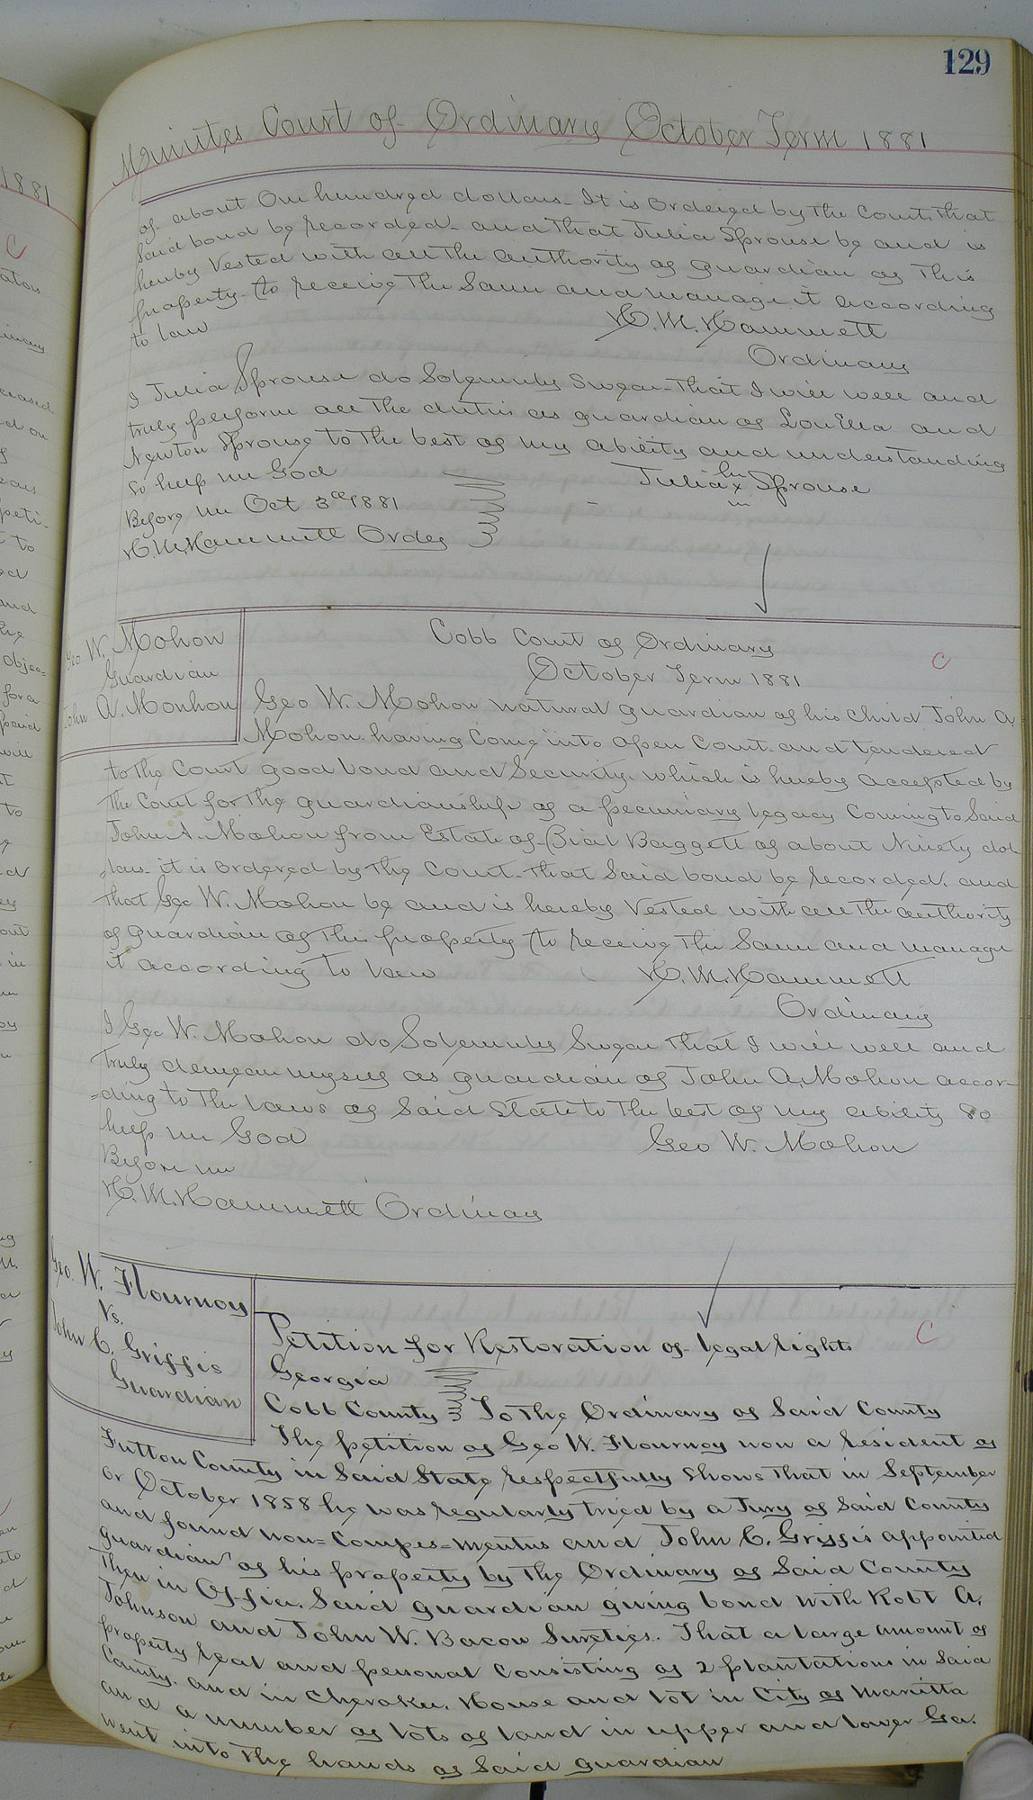 129
Minutes Court of Ordinary October Term 1881
of about One hundred dollars. It is ordered by the Court that
said bond be recorded. and that Julia Sprouse be and is
hereby vested with all the authority of guardian of this
property to receive the same and manage it according
to law
H. M. Hammett
Ordinary
I Julia Sprouse do Solemnly Swear that I will well and
truly perform all the duties as guardian of Lou Ella and
Newton Sprouse to the best of my ability and understanding
So help me God
Julia x Sprouse
Before me Oct 3rd 1881
H. M. Hammett Ordny
Geo W. Mohon
Guardian
John A. Monhon
C
Cobb Court of Ordinary
October Term 1881
Geo W. Mohon natural guardian of his child John A.
Mohon having come into open Court and tendered
to the Court good bond and Security which is hereby accepted by
the Court for the guardianship of a pecuniary legacy coming to said
John A. Mohon from Estate of Baggett of about Ninety dol
lars it is ordered by the Court that said bond be recorded. and
that Geo W. Mohon be and is hereby vested with all the authority
of guardian of this property to receive the same and manage
it according to law
H. M. Hammett
Ordinary
I Geo W. Mohon do Solemnly Swear that I will well and
truly demean myself as guardian of John A. Mohon accor-
=ding to the laws of said State to the best of my ability So
help me God
Geo W. Mohon
Before me
H. M. Hammett Ordinary
Geo. W. Flournoy
Vs.
John C. Griffis
Guardian
C
Petition for Restoration of legal rights
Georgia
Cobb County To the Ordinary of Said County
The petition of Geo W. Flournoy now a resident of
Fulton County in said State respectfully shows that in September
or October 1858 he was regularly tried by a Jury of said County
and found non=compes=mentus and John C. Griffis appointed
guardian of his property by the Ordinary of Said County
then in Office. Said guardian giving bond with Robt A.
Johnson and John W. Bacon Sureties. That a large amount of
property real and personal consisting of 2 plantations in said
County. and in Cherokee. House and lot in City of Marietta
and a number of lots of land in upper and lower Ga.
went into the hands of said guardian